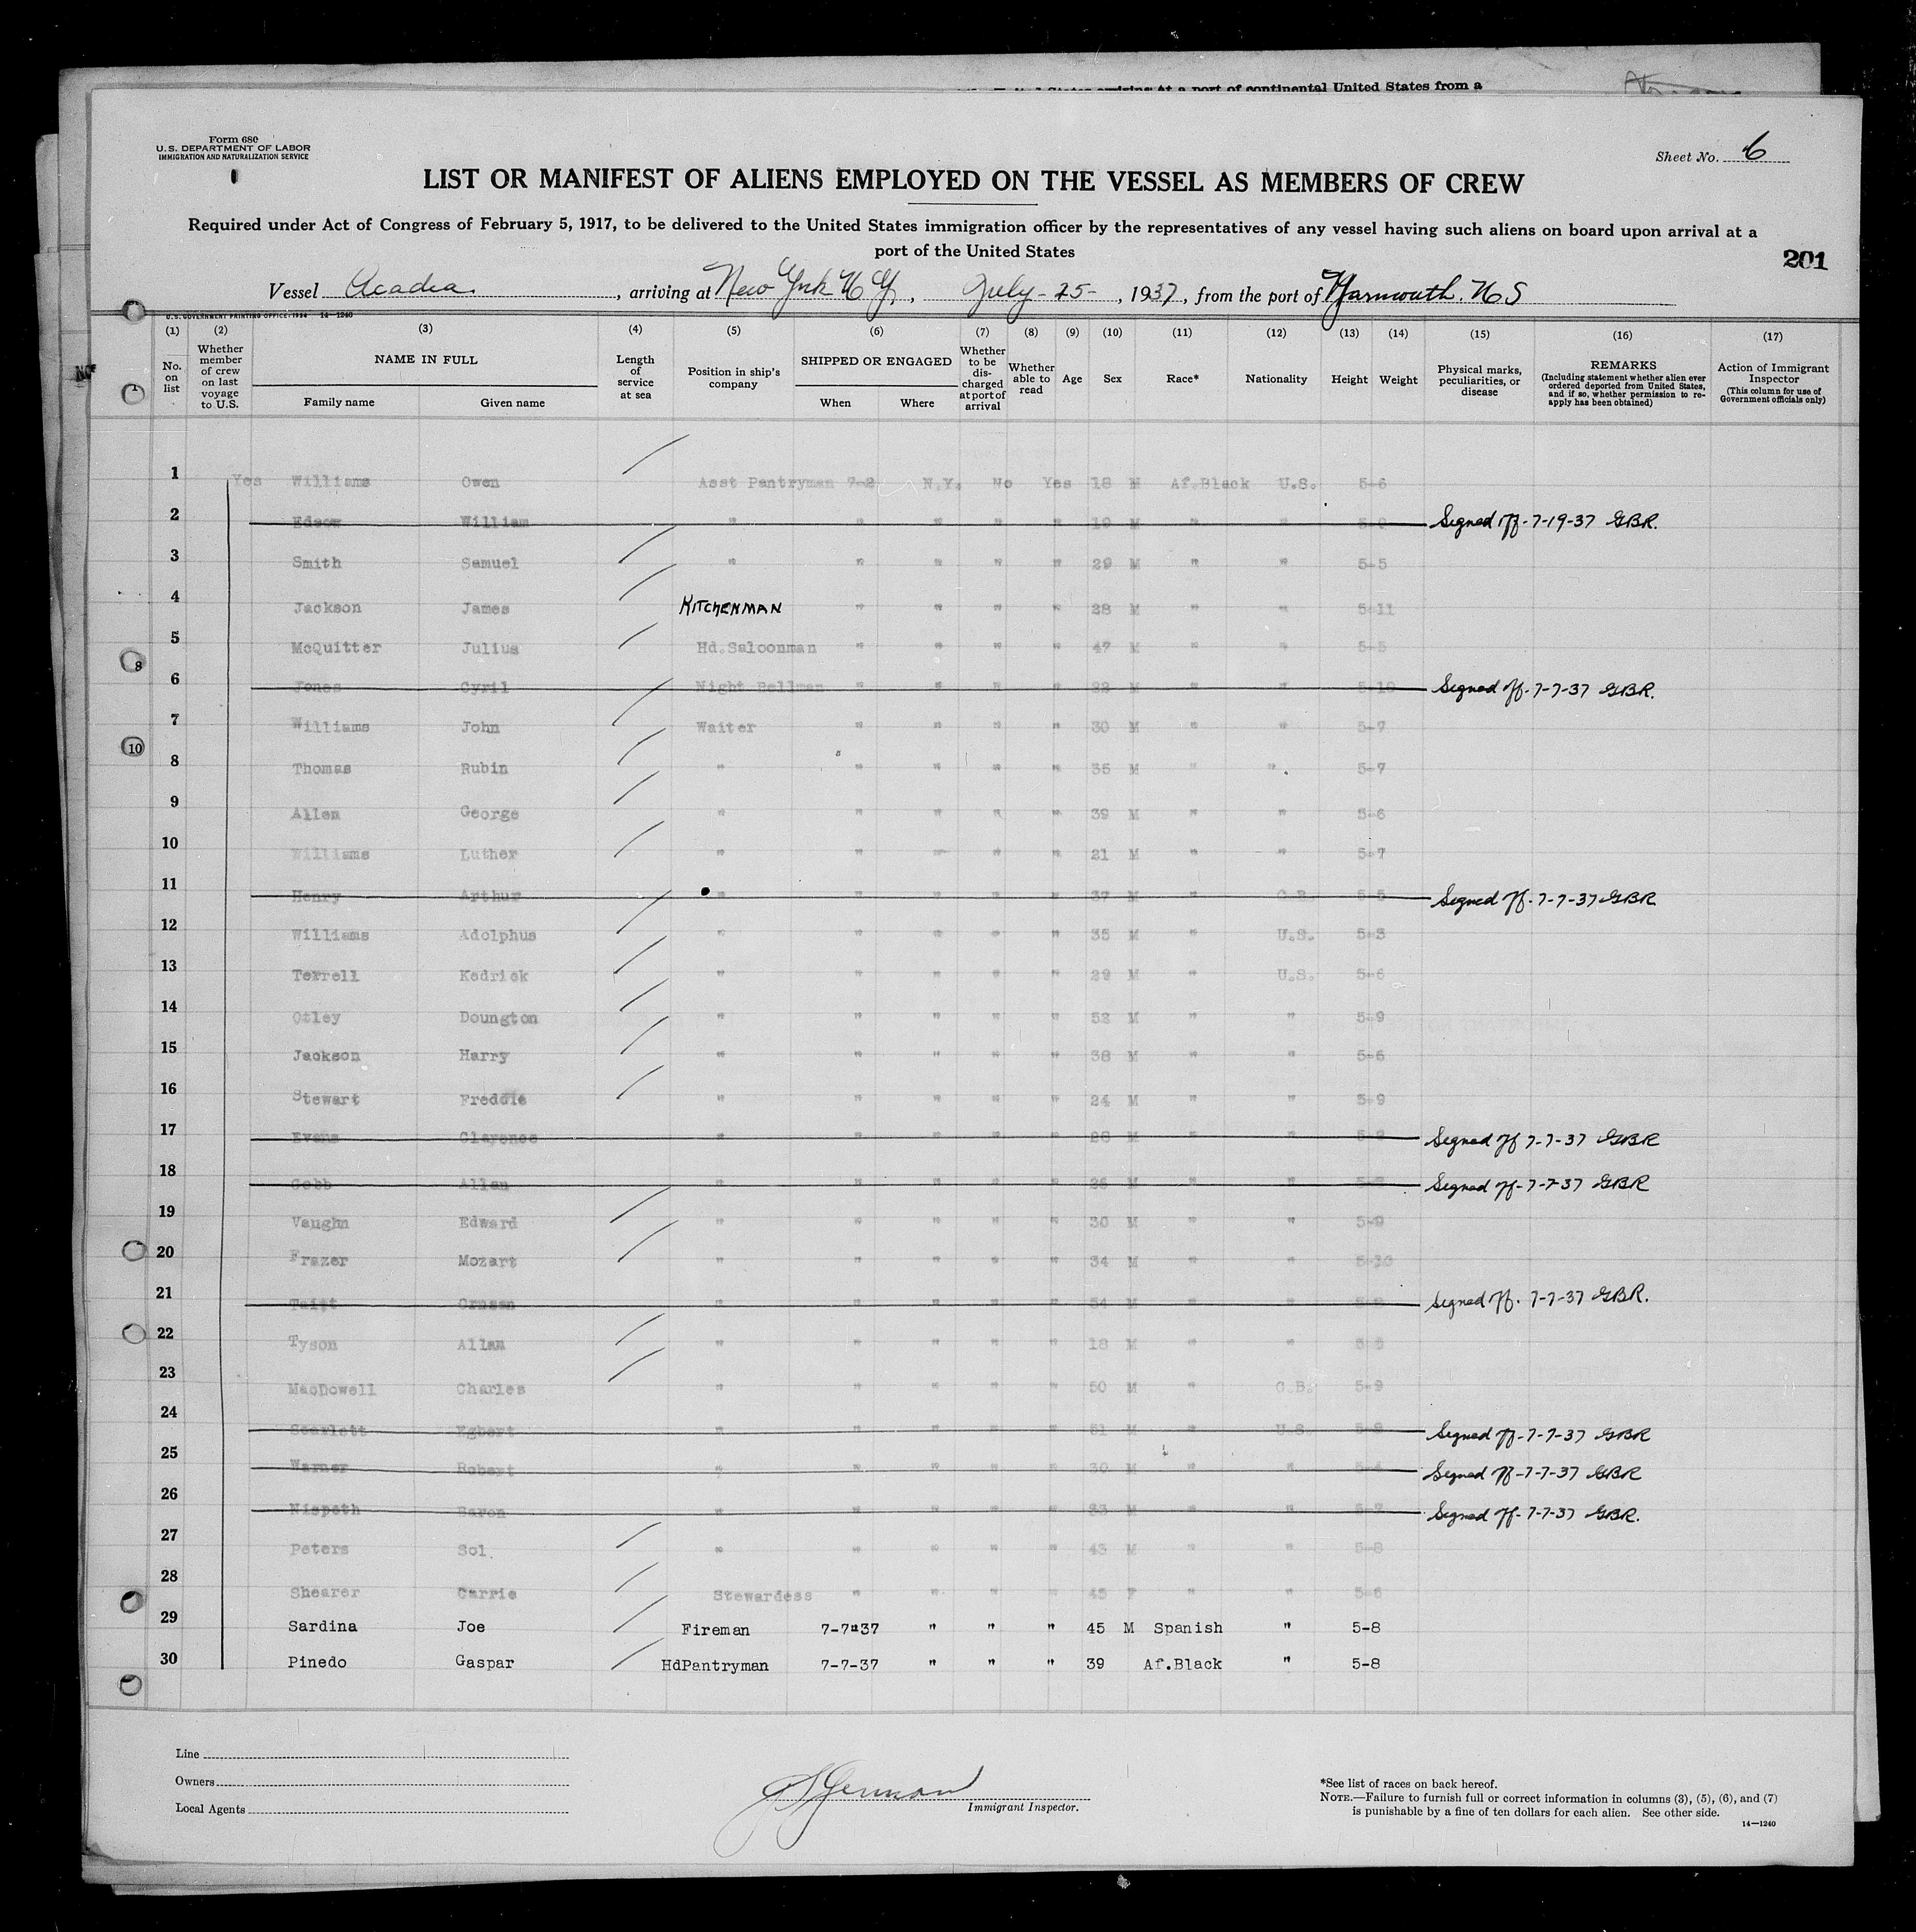 the United States arriving at a port of continental United States from a
Form 680
U.S. DEPARTMENT OF LABOR
IMMIGRATION AND NATURALIZATION SERVICE
Sheet No. 6
LIST OR MANIFEST OF ALIENS EMPLOYED ON THE VESSEL AS MEMBERS OF CREW
Required under Act of Congress of February 5, 1917, to be delivered to the United States immigration officer by the representatives of any vessel having such aliens on board upon arrival at a
port of the United States
201
Vessel Acadia, arriving at New York N Y, July-25-, 1937, from the port of Yarmouth. N S
U.S. GOVERNMENT PRINTING OFFICE: 1934 14—1240
(1) (2) (3) (4) (5) (6) (7) (8) (9) (10) (11) (12) (13) (14) (15) (16) (17)
No. on list
Whether member of crew on last voyage to U.S.
NAME IN FULL
Family name Given name
Length of service at sea
Position in ship's company
SHIPPED OR ENGAGED
When Where
Whether to be discharged at port of arrival
Whether able to read
Age
Sex
Race*
Nationality
Height
Weight
Physical marks, peculiarities, or disease
REMARKS
(Including statement whether alien ever ordered deported from United States, and if so, whether permission to reapply has been obtained)
Action of Immigrant Inspector
(This column for use of Government officials only)
1 Yes Williams Owen Asst Pantryman 7-2 N.Y. No Yes 18 M Af.Black U.S. 5-6
2 William " " " " " 19 M " " Signed off-7-19-37 GBR.
3 Smith Samuel " " " " " 29 M " " 5-5
4 Jackson James KITCHENMAN " " " " 28 M " " 5-11
5 McQuitter Julius Hd.Saloonman " " " " 47 M " " 5-5
6 Jones Cyril Night Bellman " " " " 22 M " " 5-10 Signed off-7-7-37 GBR.
7 Williams John Waiter " " " " 30 M " " 5-7
8 Thomas Rubin " " " " " 35 M " " 5-7
9 Allen George " " " " " 39 M " " 5-6
10 Williams Luther " " " " " 21 M " " 5-7
11 Henry Arthur " " " " " 37 M " G.B. 5-5 Signed off-7-7-37 GBR
12 Williams Adolphus " " " " " 35 M " U.S. 5-3
13 Terrell Kedrick " " " " " 29 M " U.S. 5-6
14 Otley Doungton " " " " " 52 M " " 5-9
15 Jackson Harry " " " " " 38 M " " 5-6
16 Stewart Freddie " " " " " 24 M " " 5-9
17 Evans Clarence " " " " " 28 M " " Signed off 7-7-37 GBR
18 Cobb Allan " " " " " 26 M " " Signed off-7-7-37 GBR
19 Vaughn Edward " " " " " 30 M " " 5-9
20 Frazer Mozart " " " " " 34 M " " 5-10
21 " " " " " 54 M " " Signed off. 7-7-37 GBR.
22 Tyson Allan " " " " " 18 M " "
23 MacDowell Charles " " " " " 50 M " G.B. 5-9
24 Scarlett Egbert " " " " " 51 M " U.S. Signed off-7-7-37 GBR
25 Warner Robert " " " " " 30 M " " 5-4 Signed off-7-7-37 GBR
26 Nispeth Baron " " " " " M " " 5-7 Signed off-7-7-37 GBR.
27 Peters Sol. " " " " " 43 M " " 5-8
28 Shearer Carrie Stewardess " " " " 45 F " " 5-6
29 Sardina Joe Fireman 7-7-37 " " " 45 M Spanish " 5-8
30 Pinedo Gaspar HdPantryman 7-7-37 " " " 39 Af.Black " 5-8
Line
Owners
Local Agents
Immigrant Inspector.
*See list of races on back hereof.
NOTE.—Failure to furnish full or correct information in columns (3), (5), (6), and (7)
is punishable by a fine of ten dollars for each alien. See other side.
14—1240